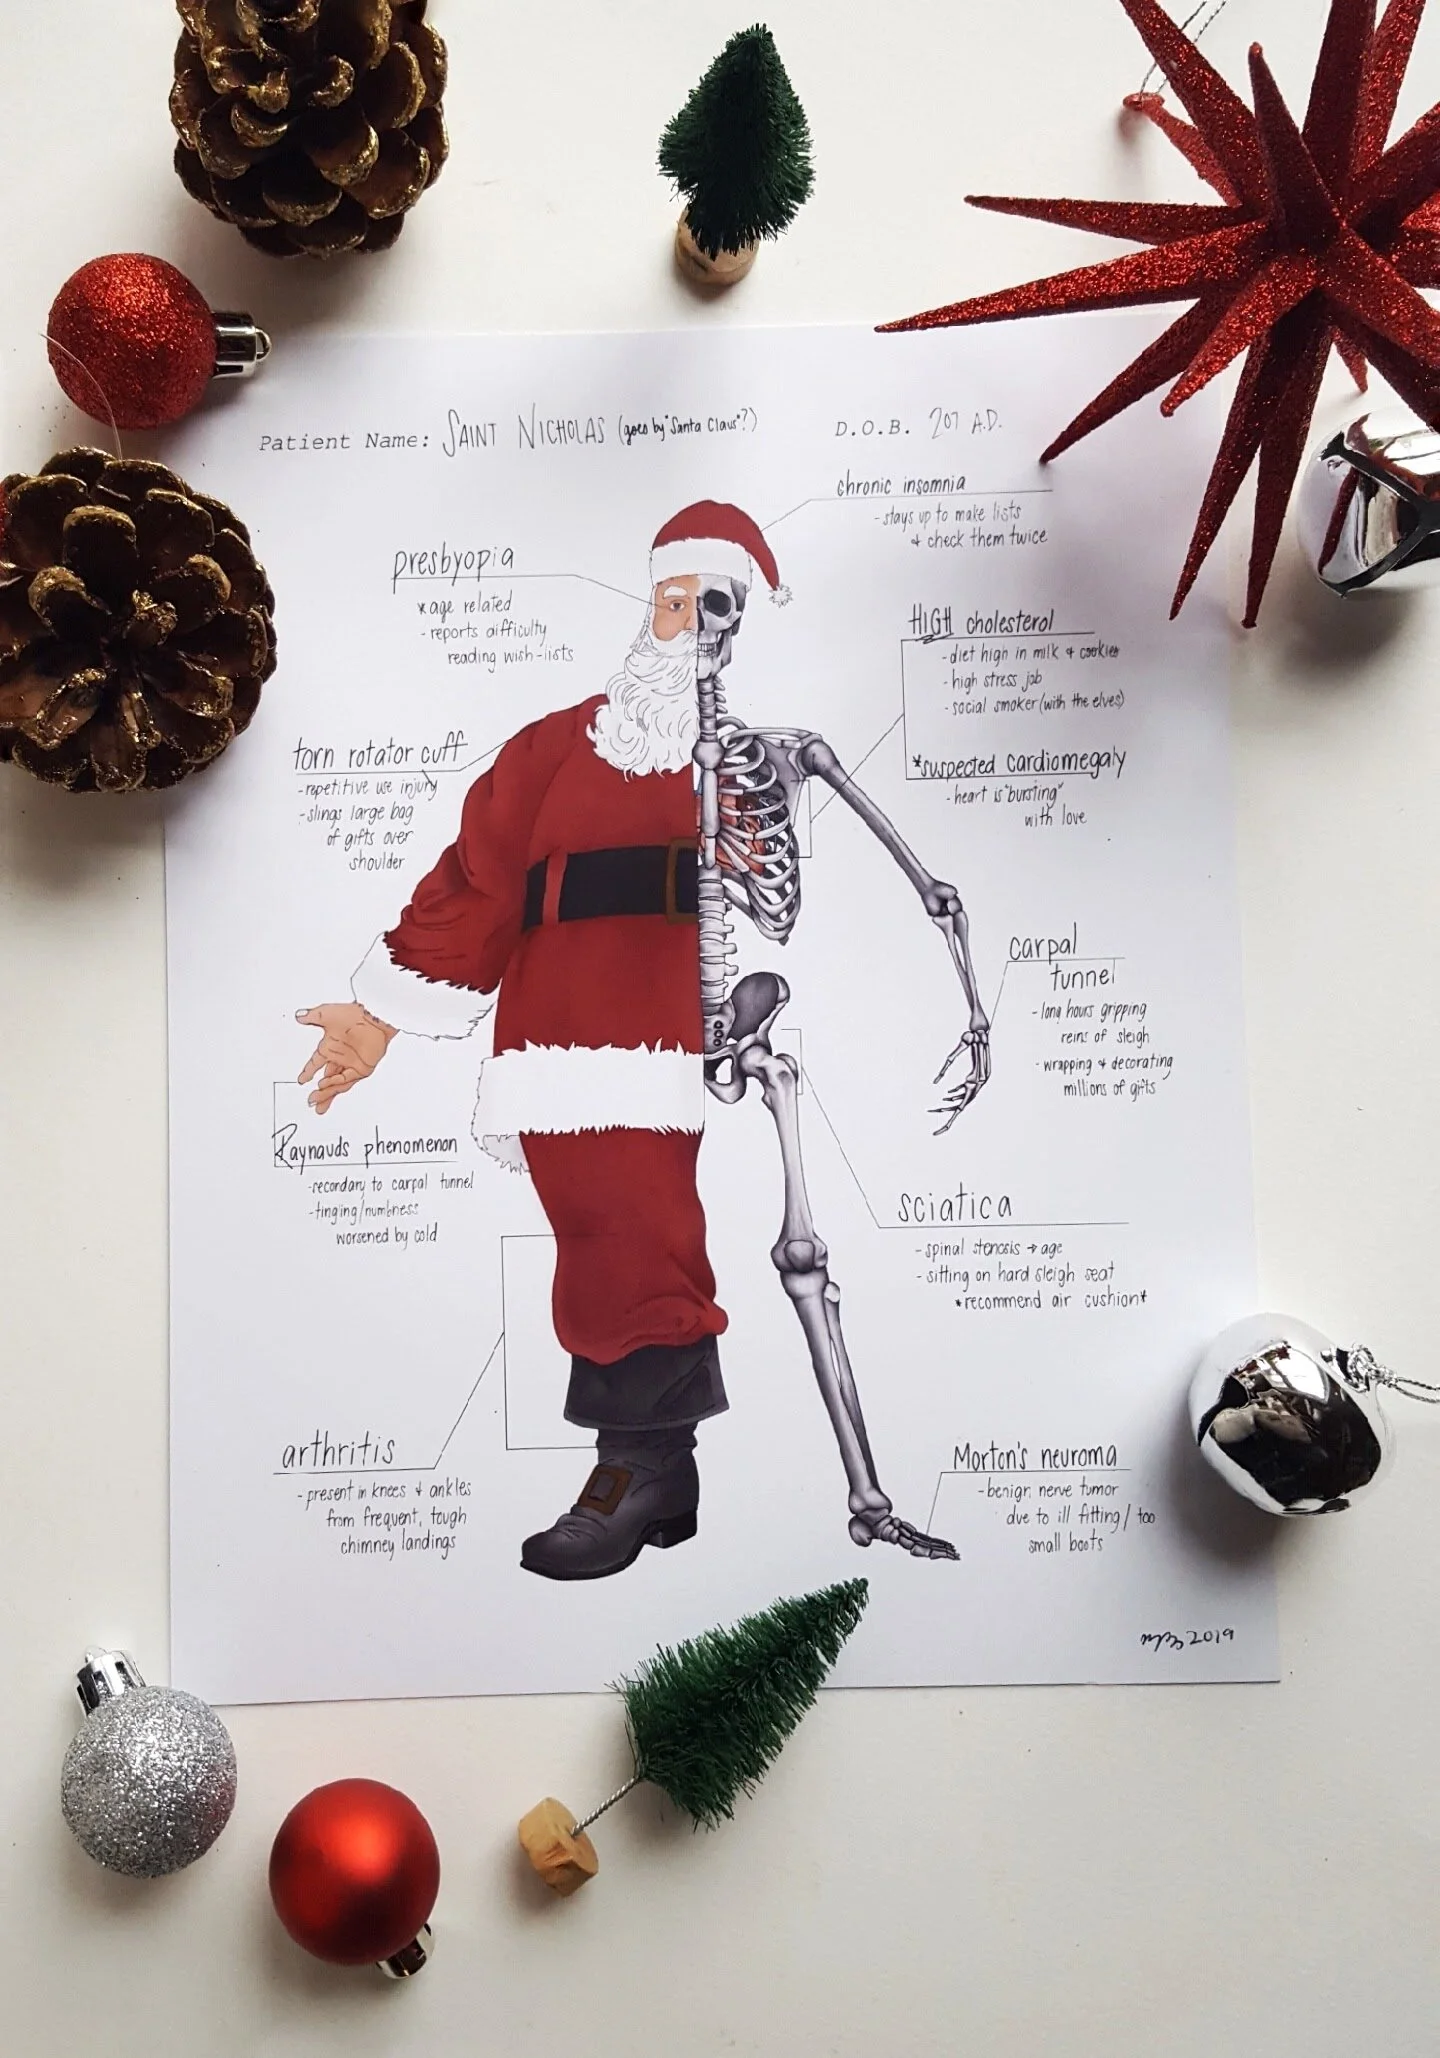 Patient Name: SAINT NICHOLAS (goes by "Santa Claus"?) D.O.B. 207 A.D.
chronic insomnia
- stays up to make lists
& check them twice
presbyopia
*age related
- reports difficulty
reading wish-lists
HIGH cholesterol
- diet high in milk & cookies
- high stress job
- social smoker (with the elves)
torn rotator cuff
- repetitive use injury
- slings large bag
of gifts over
shoulder
*suspected cardiomegaly
- heart is "bursting"
with love
carpal
tunnel
- long hours gripping
reins of sleigh
- wrapping & decorating
millions of gifts
Raynauds phenomenon
- secondary to carpal tunnel
- tinging/numbness
worsened by cold
sciatica
- spinal stenosis → age
- sitting on hard sleigh seat
*recommend air cushion*
arthritis
- present in knees & ankles
from frequent, tough
chimney landings
Morton's neuroma
- benign nerve tumor
due to ill fitting / too
small boots
2019